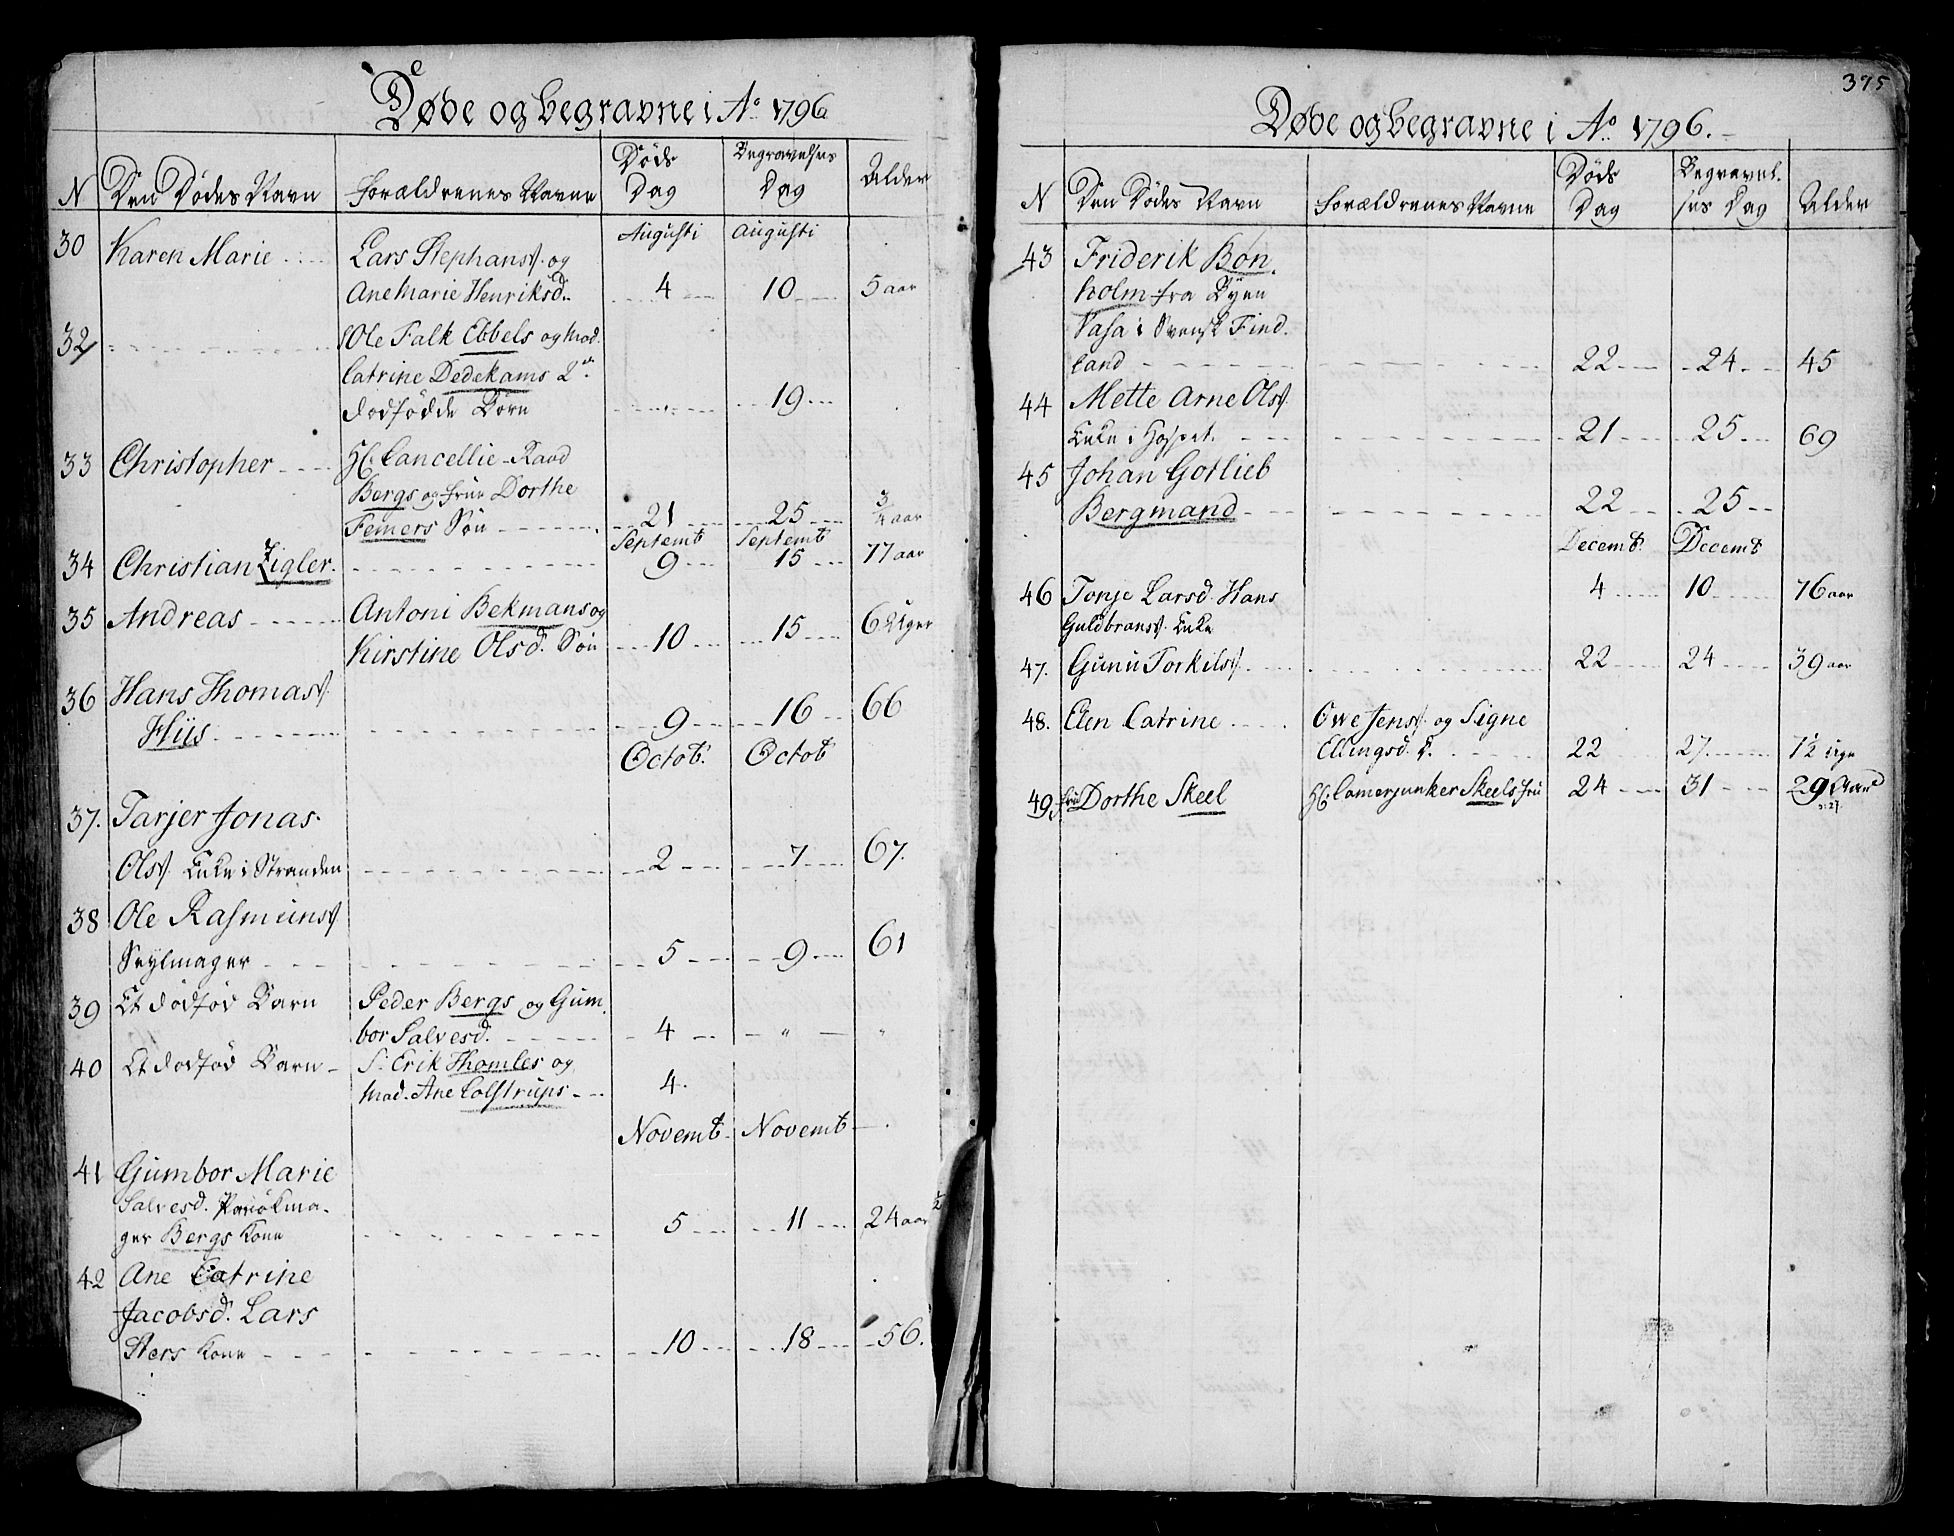 Døde og begravne i Aº 1796
N Den Dødes Navn Forældrenes Navne Døds Dag Begravelses Dag Alder
Augusti Augusti
30 Karen Marie Lars Stephans. og
Ane Marie Henriksd. 4 10 5 aar
32 Ole Falk Ebbels og Mad.
Catrine Dedekams 2de
dødfødde Børn 19
33 Christopher H. Cancellie-Raad
Bergs og Frue Dorthe
Femers Søn 21 25 3/4 aar
Septemb Septemb
34 Christian Zigler 9 15 77 aar
35 Andreas Antoni Bekmans og
Kirstine Olsd. Søn 10 15 6 Uger
36 Hans Thomas.
Hiis 9 16 66
Octob. Octob
37. Tarjer Jonas
Ols. Enke i Stranden 2 7 67.
38 Ole Rasmuns.
Seylmager 5 9 61
39 Et dødfød Barn Peder Bergs og Gum
bor Salvesd. 4 " "
40 Et dødfød Barn S. Erik Thomles og
Mad. Ane Colstrups 4.
Novemb Novemb
41 Gumbor Marie
Salvesd. ma-
ger Bergs Kone 5 11 24 aar 1/2
42 Ane Catrine
Jacobsd. Lars
Sters Kone 10 18 56.
375
Døde og begravne i Aº 1796.
N Den Dødes Navn Forældrenes Navne Døds Dag Begravel- ses Dag Alder
43 Friderik Bon
holm fra Byen
Vasa i Svensk Find
land 22 24 45
44 Mette Arne Ols.
Enke i Hospit. 21 25 69
45 Johan Gotlieb
Bergmand 22 25
Decemb. Decemb
46 Tonje Larsd. Hans
Guldbrans. Enke 4 10 76 aar
47. Gunu Torkils. 22 24 39 aar
48. Elen Catrine Owe Jens. og Signe
Ellingsd. D. 22 27 7 1/2 Uge
49 Fru Dorthe Skeel H. Camerjunker Skeels Fru 24 31 29 Aar